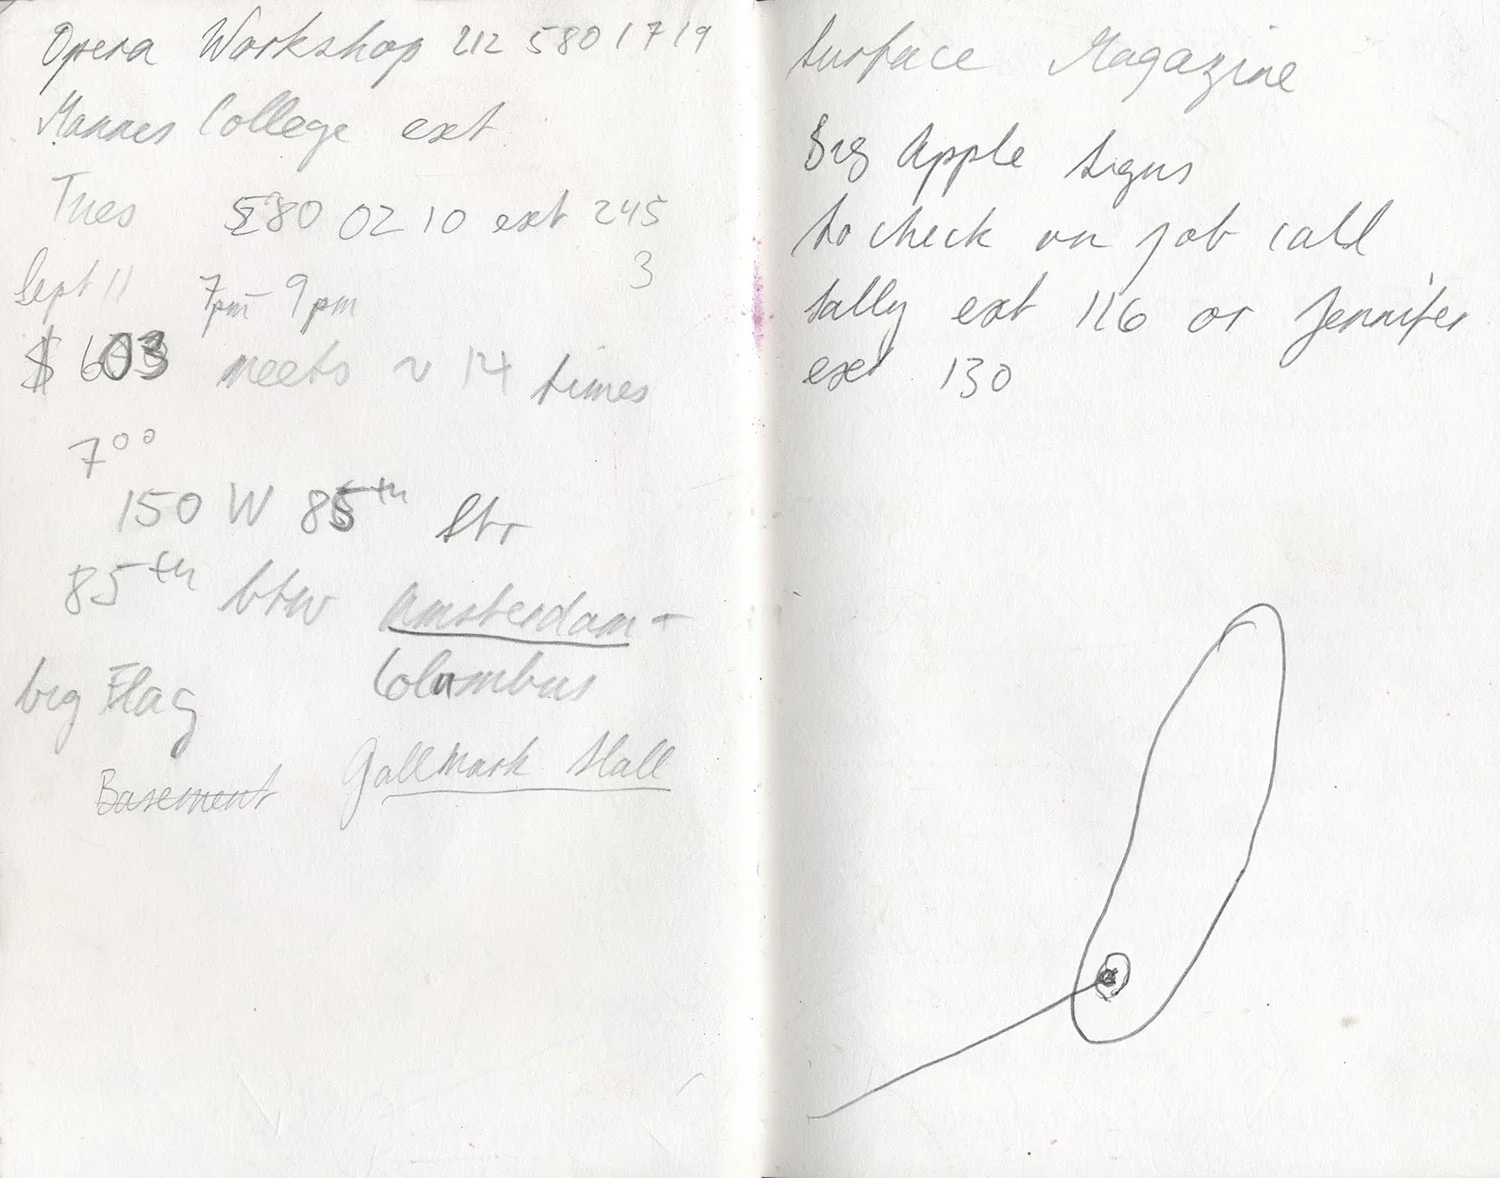 Opera Workshop 212 580 1719
Mannes College ext
Tues 580 02 10 ext 245
3
Sept 11 7pm - 9pm
$ 603 meets ~ 14 times
7⁰⁰
150 W 85th Str
85th btw Amsterdam -
Columbus
big Flag
Gallmark Hall
Basement
Surface Magazine
Big Apple Signs
to check on job call
Sally ext 116 or Jennifer
ext 130